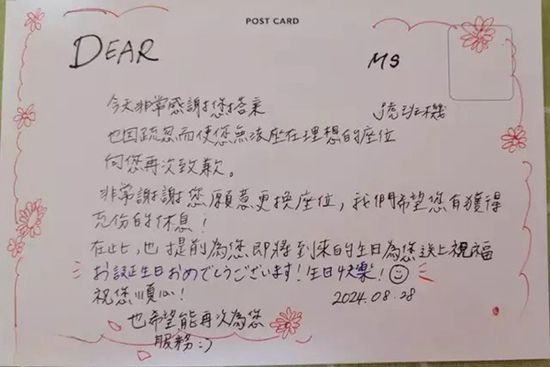 POST CARD
DEAR MS
今天非常感謝您搭乘 號班機
也因疏忽而使您無法座在理想的座位
向您再次致歉。
非常謝謝您願意更換座位，我們希望您有獲得
充份的休息！
在此，也提前為您即將到來的生日為您送上祝福
お誕生日おめでとうございます！生日快樂！
祝您順心！ 2024.08.28
也希望能再次為您
服務:)